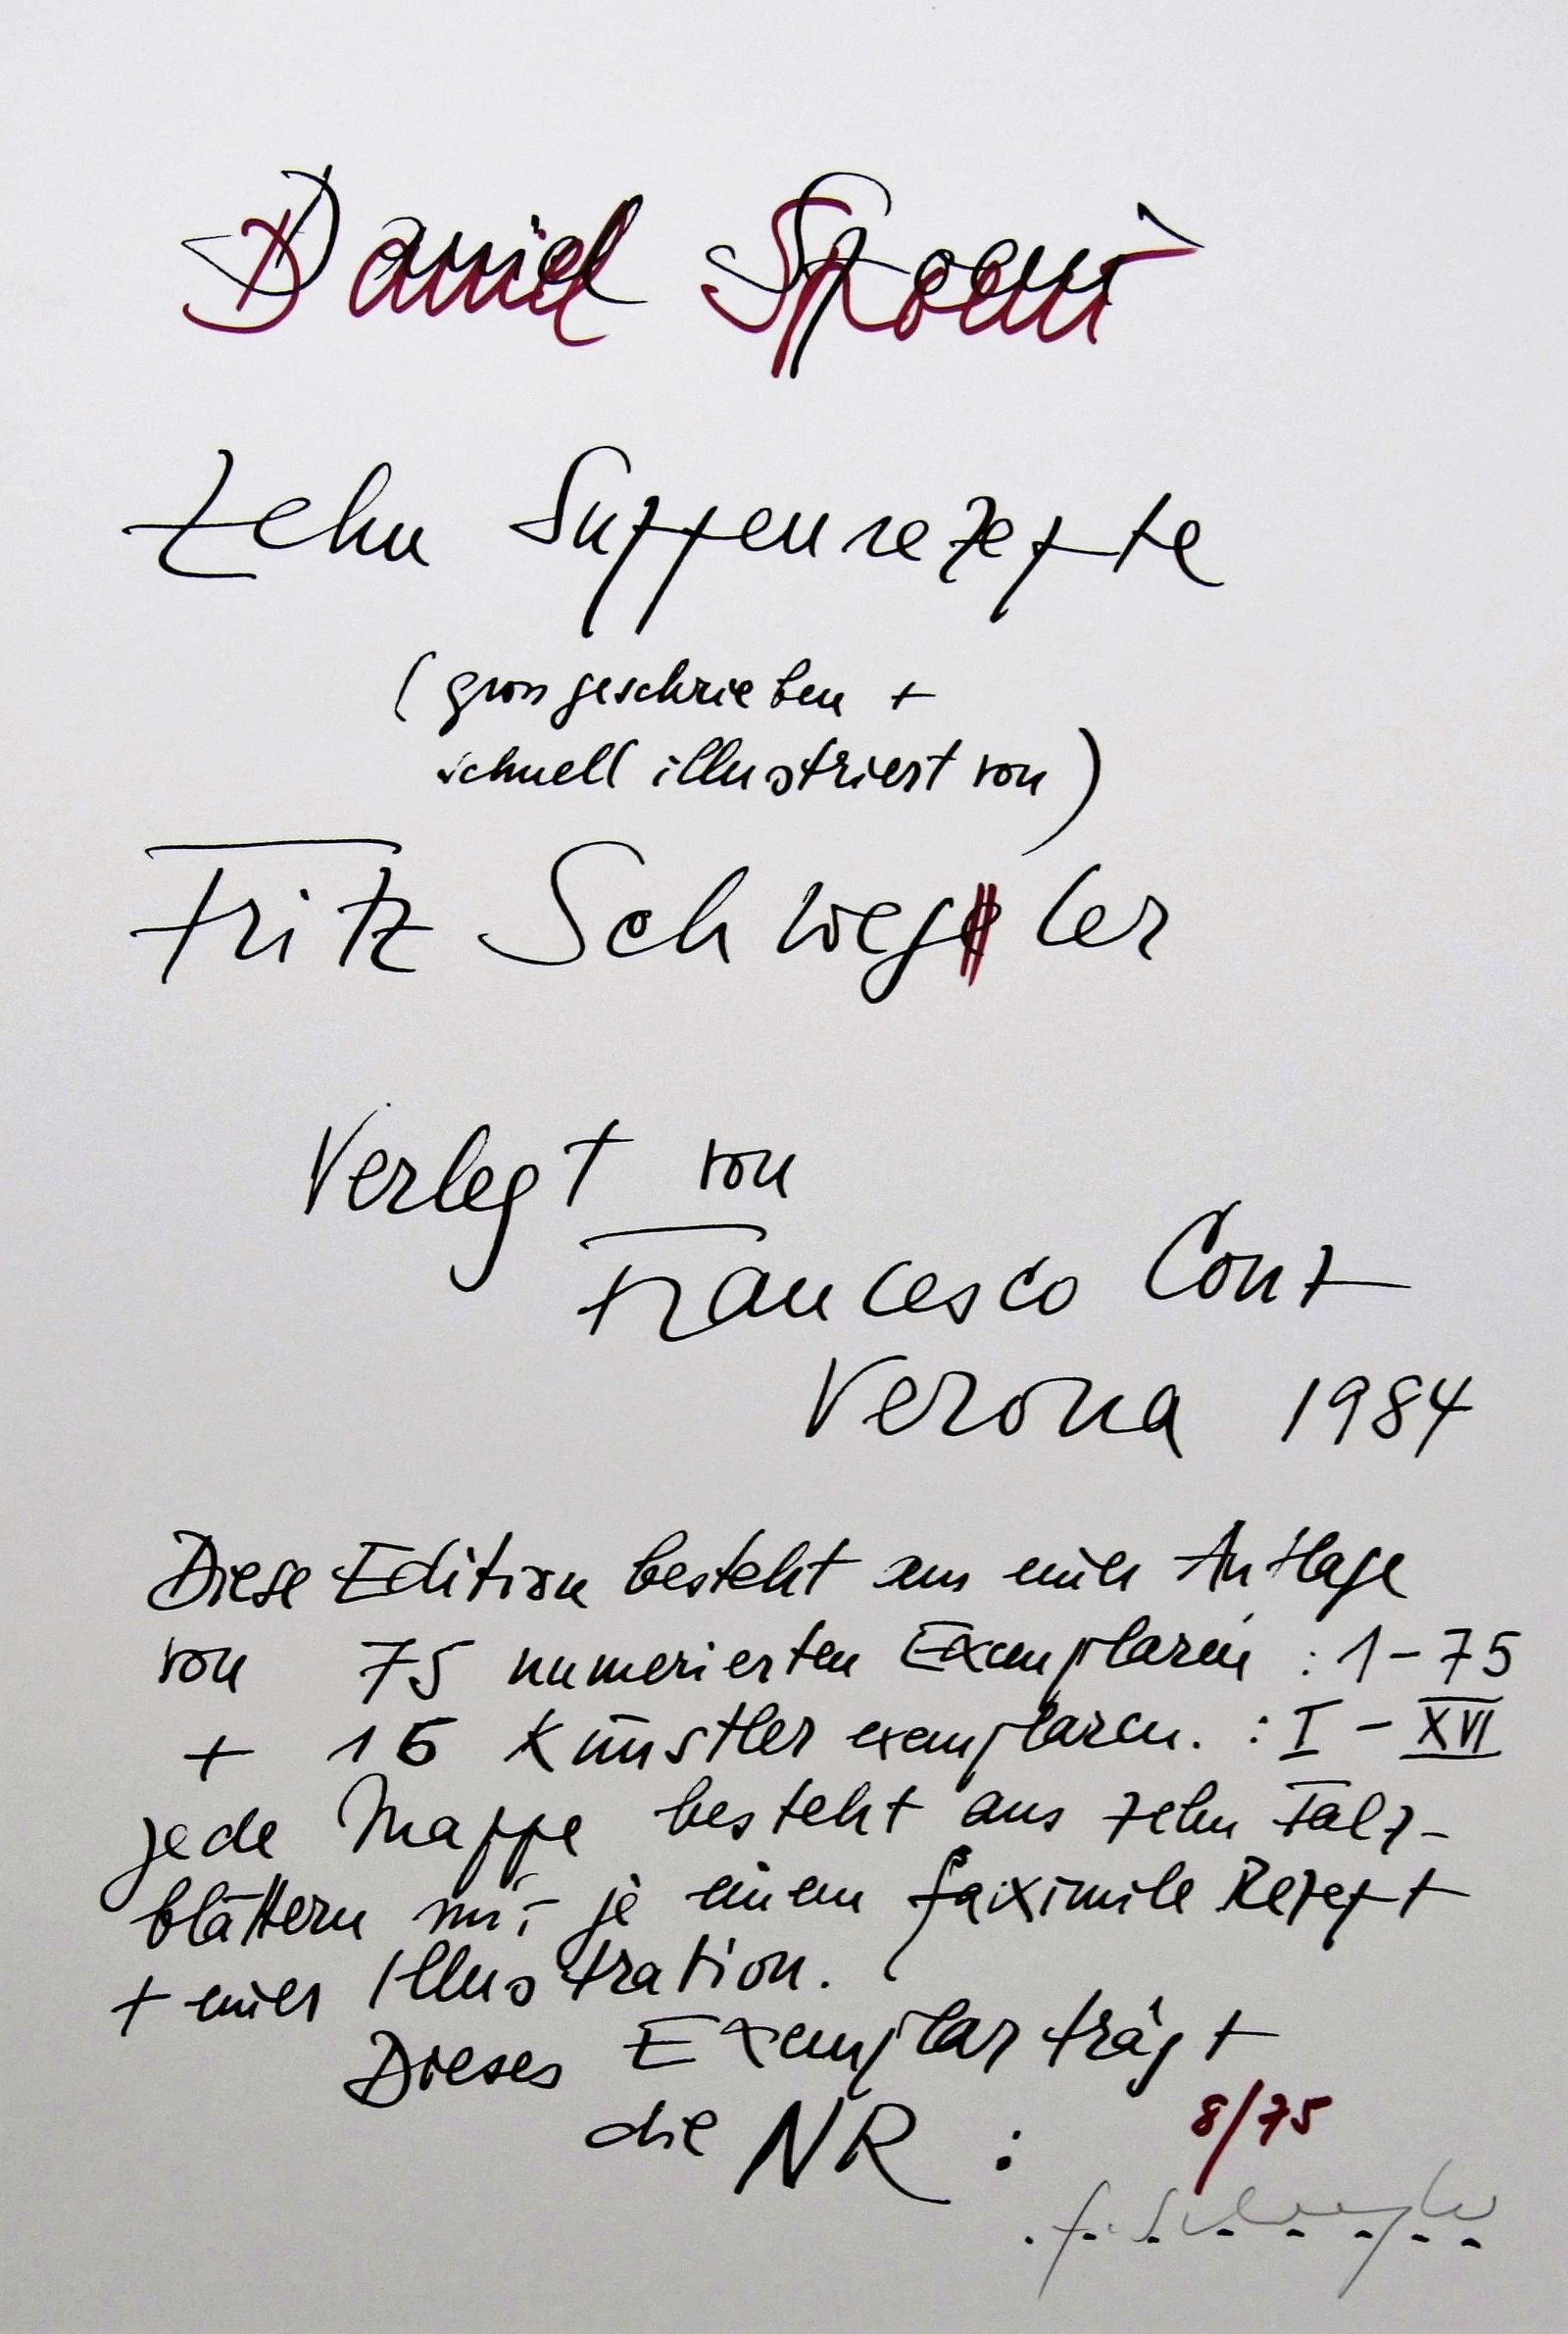 Daniel Spoerri
Zehn Suppenrezepte
(gross geschrieben +
schnell illustriert von)
Fritz Schwegler
Verlegt von
Francesco Conz
Verona 1984
Diese Edition besteht aus einer Auflage
von 75 numerierten Exemplaren : 1 - 75
+ 16 Künstlerexemplaren. : I - XVI
jede Mappe besteht aus zehn Falz-
blättern mit je einem faiximile Rezept
+ einer Illustration.
Dieses Exemplar trägt
die NR :
8/75
f. Schwegler